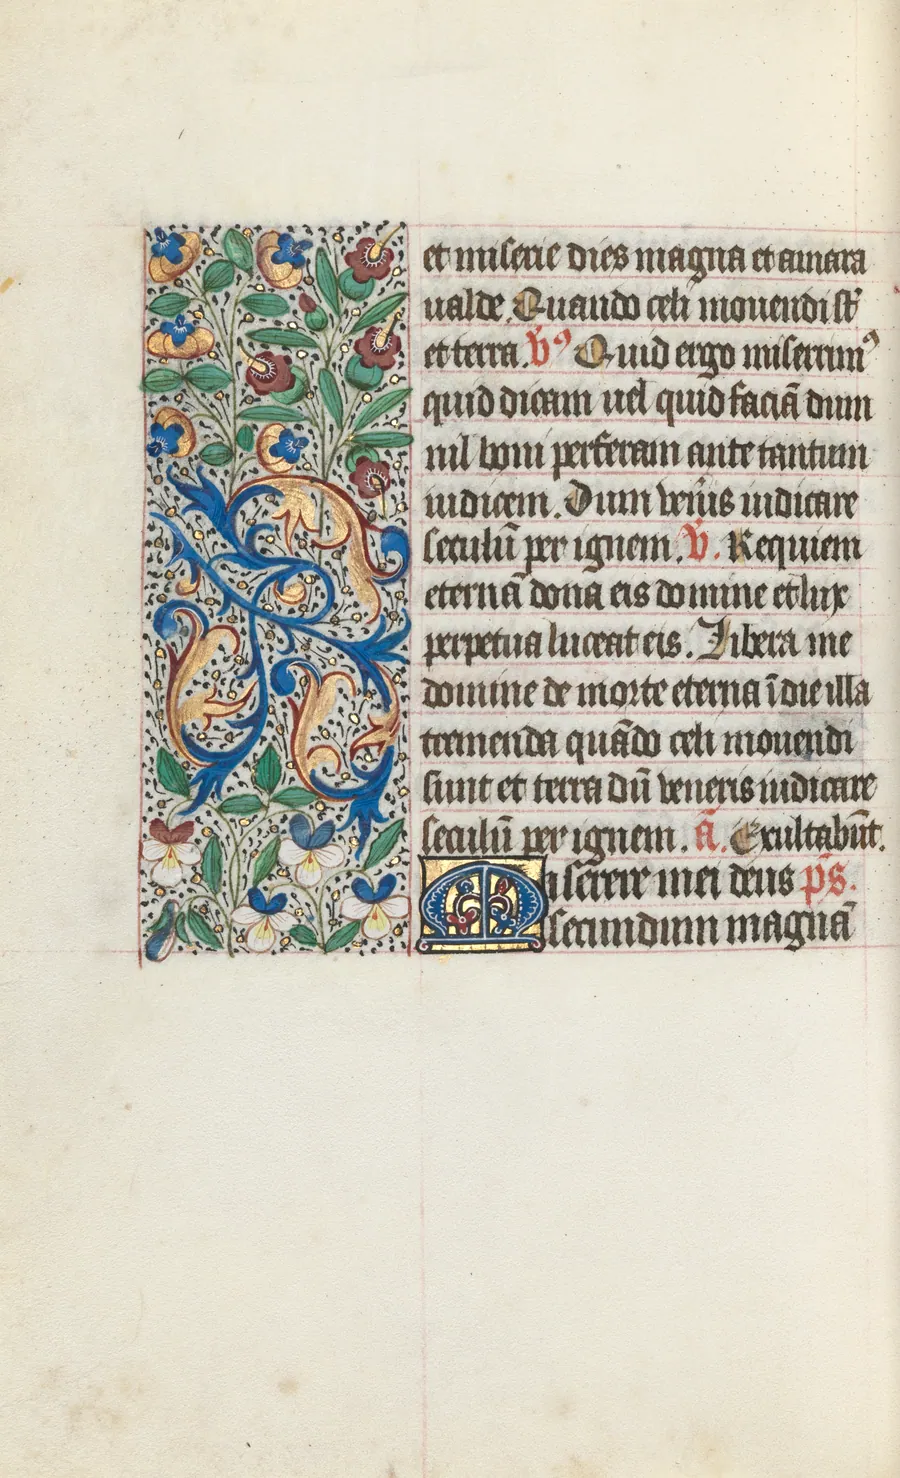 et miserie dies magna et amara
ualde. Quando celi mouendi sūt
et terra. v̓ꝰ Quid ergo miserrimꝰ
quid dicam uel quid faciā dum
nil boni perferam ante tantum
iudicem. Dum veñis iudicare
seculū per ignem. v̓. Requiem
eternā dona eis domine et lux
perpetua luceat eis. Libera me
domine de morte eterna ī die illa
tremenda quādo celi mouendi
sunt et terra dū veneris iudicare
seculū per ignem. ā. Exultabūt.
Miserere mei deus p̄s.
secundum magnā